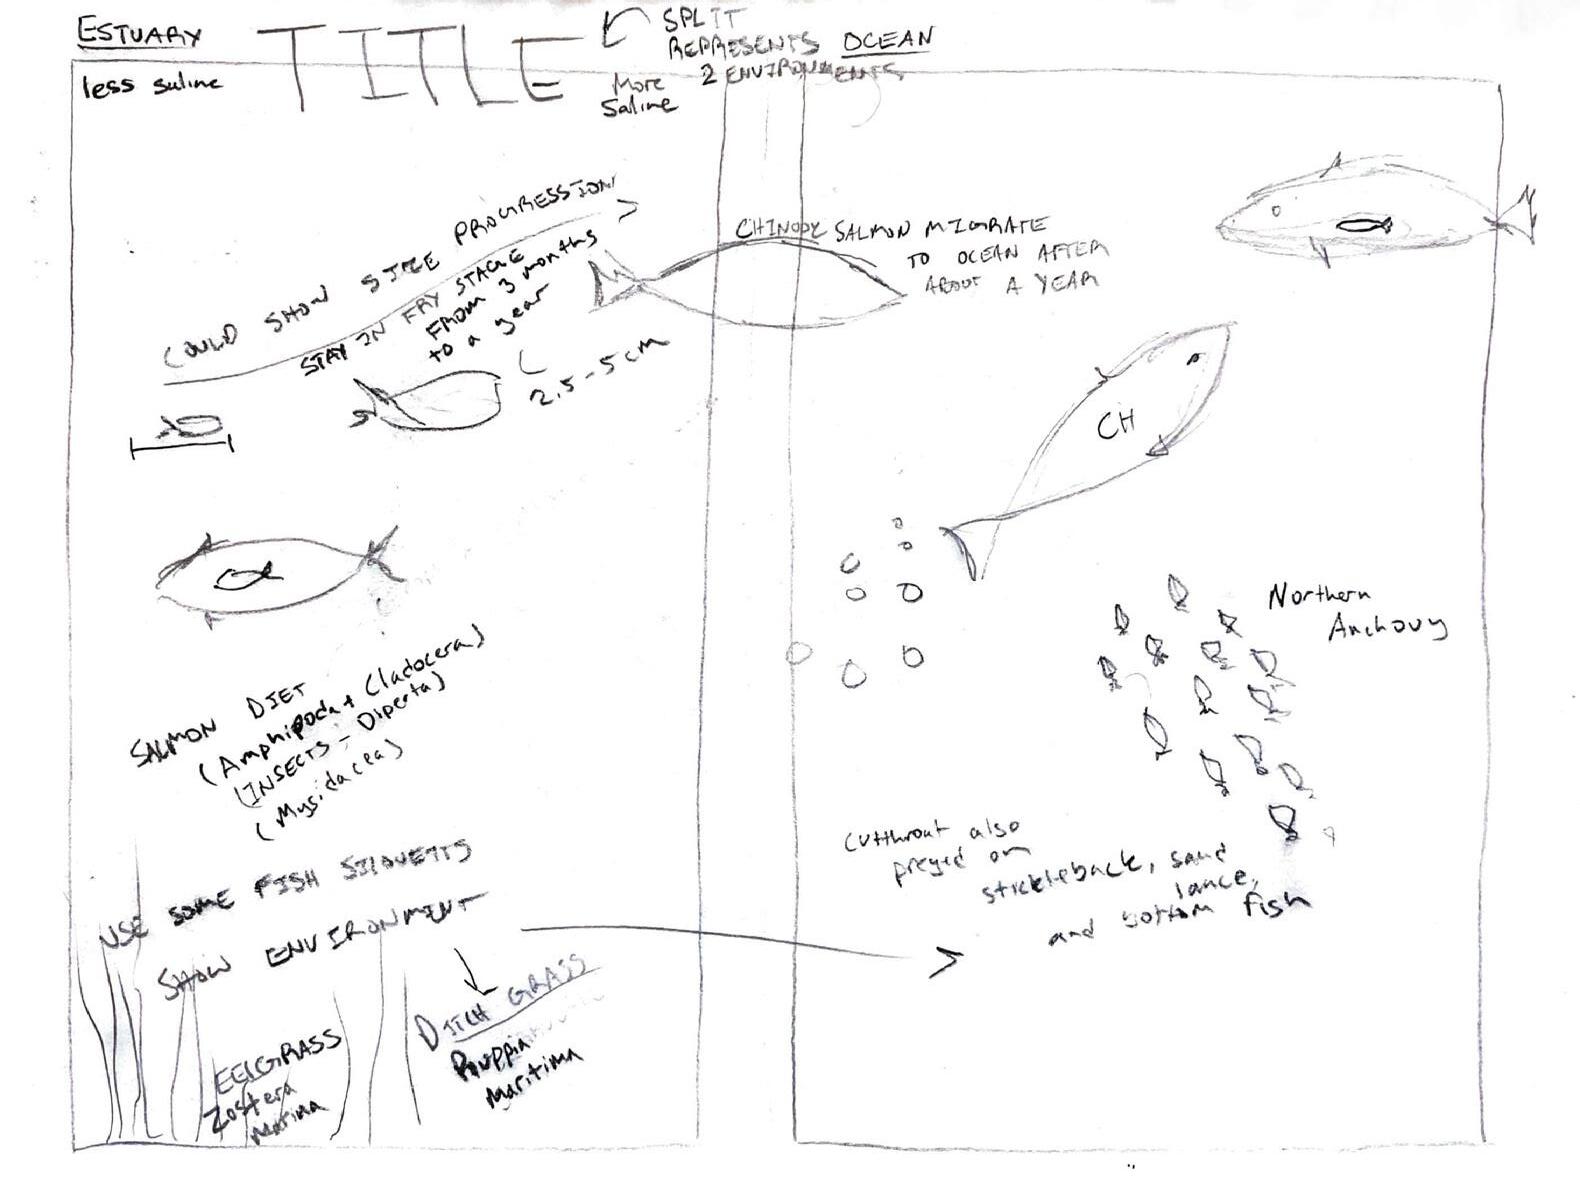 ESTUARY
less saline
TITLE
SPLIT
REPRESENTS
2 ENVIRONMENTS
OCEAN
More
Saline
COULD SHOW SIZE PROGRESSION
STAY IN FRY STAGE
FROM 3 months
to a year
2.5-5cm
CHINOOK SALMON MIGRATE
TO OCEAN AFTER
ABOUT A YEAR
CH
Northern
Anchovy
SALMON DIET
(Amphipoda + Cladocera)
(INSECTS - Diperta)
(Mysidacea)
Cutthroat also
preyed on
stickleback, sand
lance,
and bottom fish
USE SOME FISH SILOUETTS
SHOW ENVIRONMENT
EELGRASS
Zostera
Marina
DITCH GRASS
Ruppia
Maritima